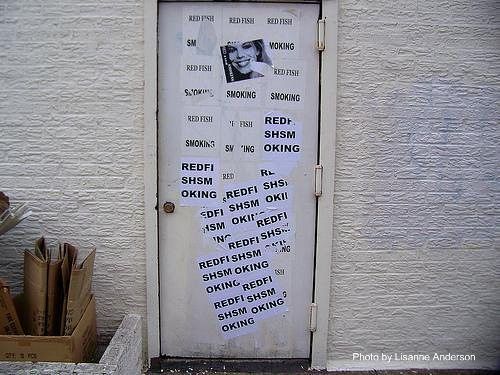 RED FISH RED FISH RED FISH
SM MOKING
RED FISH RED FISH
SMOKING SMOKING SMOKING
RED FISH RED FISH
SMOKING SM KING
REDFI
SHSM
OKING
REDFI
SHSM
OKING
RED
RE
SHS
OKI
REDFI
SHSM
OKING
EDFI
HSM
REDFI
SHSM
OKING
REDFI
SHSM
OKING
REDFI
SHSM
OKING
REDFI
SHSM
OKING
REDFI
SHSM
OKING
QTY: 15 PCS
Photo by Lisanne Anderson